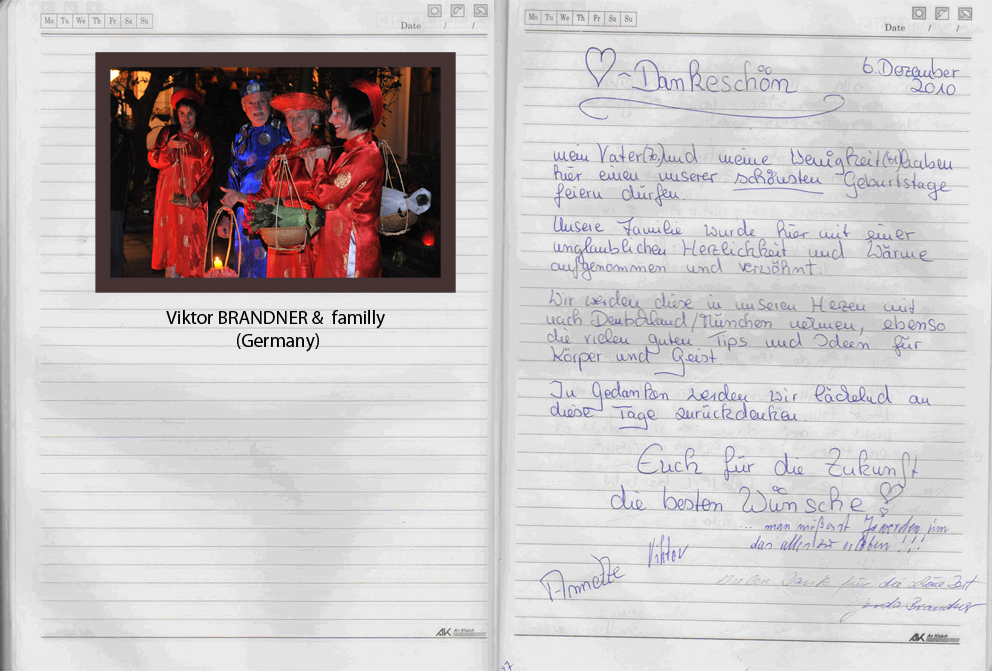 Mo Tu We Th Fr Sa Su
Date / /
Viktor BRANDNER & familly
(Germany)
AK An Khánh
Mo Tu We Th Fr Sa Su
Date / /
Dankeschön
6. Dezember
2010
mein Vater(70) und meine Wenigkeit haben
hier einen unserer schönsten Geburtstage
feiern dürfen.
Unsere Familie wurde hier mit einer
unglaublichen Herzlichkeit und Wärme
aufgenommen und verwöhnt.
Wir werden diese in unseren Herzen mit
nach Deutschland/München nehmen, ebenso
die vielen guten Tips und Ideen für
Körper und Geist.
In Gedanken werden wir lächelnd an
diese Tage zurückdenken.
Euch für die Zukunft
die besten Wünsche
.. man muß erst 70 werden um
das alles zu erleben !!!
Viktor
Annette
Vielen Dank für die schöne Zeit
Brandner
AK An Khánh